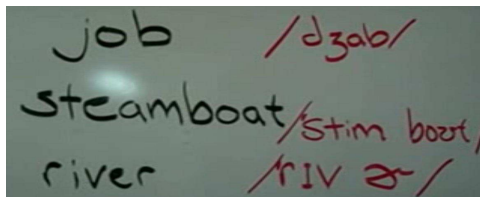 job /dʒab/
steamboat /stim boʊt/
river /rɪv ɚ/